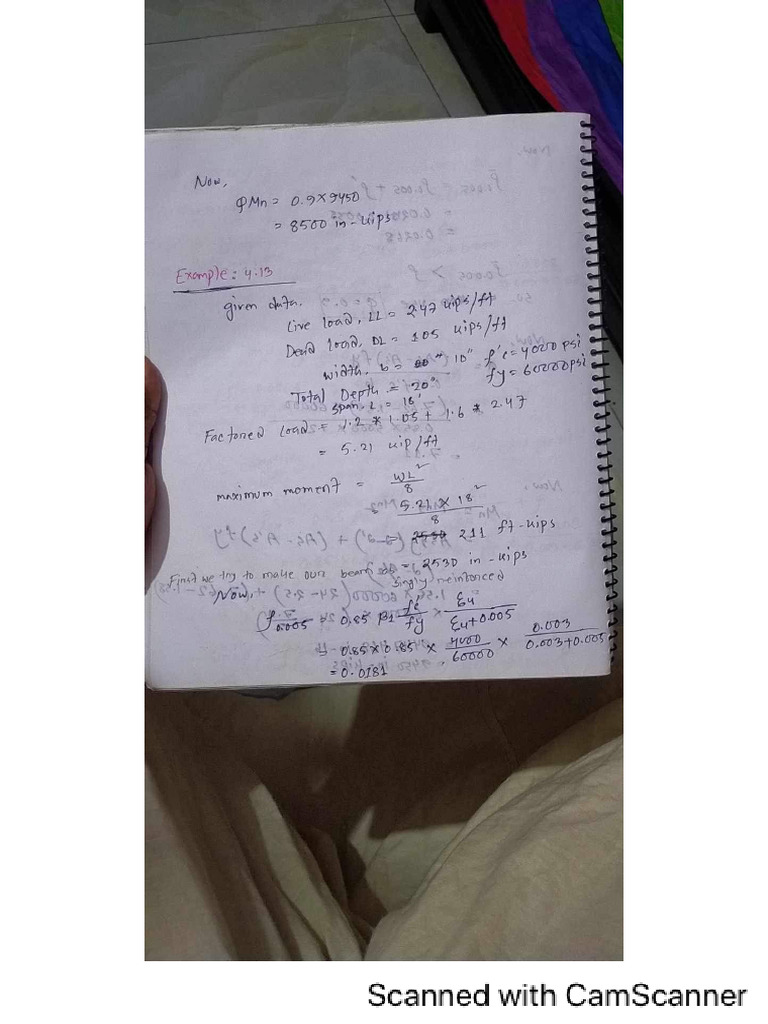 Now,
φMn = 0.9×9450
= 8500 in-kips
Example: 4.13
given data.
Live load, LL = 2.47 kips/ft
Dead load, DL = 1.05 kips/ft
width, b = 10" f'c = 4000 psi
Total Depth = 20" fy = 60000 psi
span, L = 18'
Factored Load = 1.2 * 1.05 + 1.6 * 2.47
= 5.21 kip/ft
maximum moment = WL²/8
= 5.21 × 18²/8
= 211 ft-kips
= 2530 in-kips
First we try to make our beam singly reinforced
Now,
ρ0.005 = 0.85 β1 f'c/fy × εu/εu+0.005
= 0.85×0.85 × 4000/60000 × 0.003/0.003+0.005
= 0.0181
Scanned with CamScanner